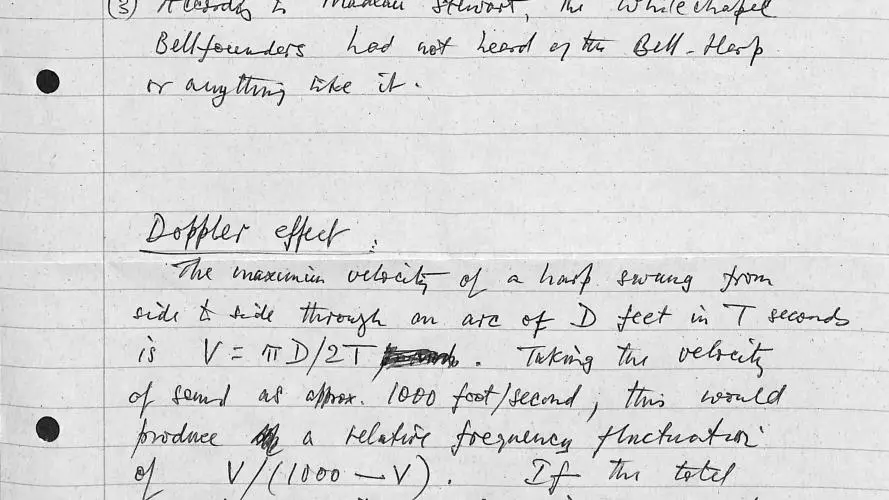 (3) According to Madeau Stewart, the Whitechapel
Bellfounders had not heard of the Bell-Harp
or anything like it.
Doppler effect:
The maximum velocity of a harp swung from
side to side through an arc of D feet in T seconds
is V = πD/2T . Taking the velocity
of sound as approx. 1000 foot/second, this would
produce a relative frequency fluctuation
of V/(1000 — V). If the total